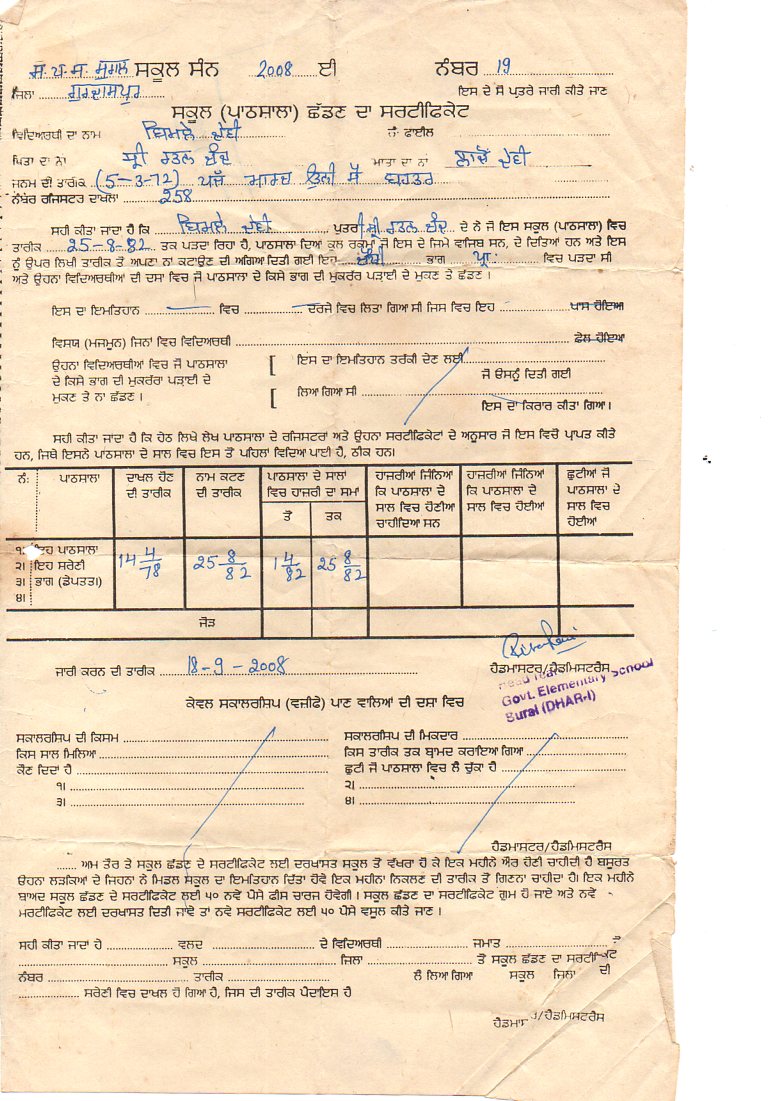 ਸ.ਪ.ਸ. ਸੁਰਾਲ ਸਕੂਲ ਸੰਨ 2008 ਈ ਨੰਬਰ 19
ਜਿਲਾ ਗੁਰਦਾਸਪੁਰ ਇਸ ਦੇ ਸੌ ਪਤਰੇ ਜਾਰੀ ਕੀਤੇ ਜਾਣ
ਸਕੂਲ (ਪਾਠਸ਼ਾਲਾ) ਛੱਡਣ ਦਾ ਸਰਟੀਫਿਕੇਟ
ਵਿਦਿਅਰਥੀ ਦਾ ਨਾਮ ਬਿਮਲੇ ਦੇਵੀ ਨੰ ਫਾਈਲ
ਪਿਤਾ ਦਾ ਨਾਂ ਸ਼੍ਰੀ ਰਤਨ ਚੰਦ ਮਾਤਾ ਦਾ ਨਾਂ ਲਾਚੋ ਦੇਵੀ
ਜਨਮ ਦੀ ਤਾਰੀਕ (5-3-72) ਪਜੰ ਮਾਰਚ ਉਨੀ ਸੌ ਬਹਤਰ
ਨੰਬਰ ਰਜਿਸਟਰ ਦਾਖਲਾ 258
ਸਹੀ ਕੀਤਾ ਜਾਂਦਾ ਹੈ ਕਿ ਬਿਮਲੇ ਦੇਵੀ ਪੁਤਰੀ ਸ਼੍ਰੀ ਰਤਨ ਚੰਦ ਦੇ ਨੇ ਜੋ ਇਸ ਸਕੂਲ (ਪਾਠਸ਼ਾਲਾ) ਵਿਚ
ਤਾਰੀਕ 25-8-82 ਤਕ ਪੜਦਾ ਰਿਹਾ ਹੈ, ਪਾਠਸ਼ਾਲਾ ਦਿਆਂ ਕੁਲ ਰਕਮਾਂ ਜੋ ਇਸ ਦੇ ਜਿਮੇ ਵਾਜਿਬ ਸਨ, ਦੇ ਦਿਤਿਆਂ ਹਨ ਅਤੇ ਇਸ
ਨੂੰ ਉਪਰ ਲਿਖੀ ਤਾਰੀਕ ਤੋਂ ਅਪਣਾ ਨਾਂ ਕਟਾਉਣ ਦੀ ਅਗਿਆ ਦਿਤੀ ਗਈ ਇਹ ਚੌਥੀ ਭਾਗ ਪ੍ਰਾ: ਵਿਚ ਪੜਦਾ ਸੀ
ਅਤੇ ਉਹਨਾਂ ਵਿਦਿਅਰਥੀਆਂ ਦੀ ਦਸ਼ਾ ਵਿਚ ਜੋ ਪਾਠਸ਼ਾਲਾ ਦੇ ਕਿਸੇ ਭਾਗ ਦੀ ਮੁਕਰੱਰ ਪੜਾਈ ਦੇ ਮੁਕਣ ਤੇ ਛੱਡਣ ।
ਇਸ ਦਾ ਇਮਤਿਹਾਨ ਵਿਚ ਦਰਜੇ ਵਿਚ ਲਿਤਾ ਗਿਆ ਸੀ ਜਿਸ ਵਿਚ ਇਹ ਪਾਸ ਹੋਇਆ
ਵਿਸ਼ਯ (ਮਜਮੂਨ) ਜਿਨਾਂ ਵਿਚ ਵਿਦਿਅਰਥੀ ਫੇਲ ਹੋਇਆ
ਉਹਨਾਂ ਵਿਦਿਅਰਥੀਆਂ ਵਿਚ ਜੋ ਪਾਠਸ਼ਾਲਾ [ ਇਸ ਦਾ ਇਮਤਿਹਾਨ ਤਰੱਕੀ ਦੇਣ ਲਈ
ਦੇ ਕਿਸੇ ਭਾਗ ਦੀ ਮੁਕਰੱਰਾ ਪੜਾਈ ਦੇ ਜੋ ਓਸਨੂੰ ਦਿਤੀ ਗਈ
ਮੁਕਣ ਤੇ ਨਾ ਛੱਡਣ । [ ਲਿਆ ਗਿਆ ਸੀ
ਇਸ ਦਾ ਕਿਰਾਰ ਕੀਤਾ ਗਿਆ ।
ਸਹੀ ਕੀਤਾ ਜਾਂਦਾ ਹੈ ਕਿ ਹੇਠ ਲਿਖੇ ਲੇਖ ਪਾਠਸ਼ਾਲਾ ਦੇ ਰਜਿਸਟਰਾਂ ਅਤੇ ਉਹਨਾਂ ਸਰਟੀਫਿਕੇਟਾਂ ਦੇ ਅਨੁਸਾਰ ਜੋ ਇਸ ਵਿਚੋਂ ਪ੍ਰਾਪਤ ਕੀਤੇ
ਹਨ, ਜਿਥੇ ਇਸਨੇ ਪਾਠਸ਼ਾਲਾ ਦੇ ਸਾਲ ਵਿਚ ਇਸ ਤੋਂ ਪਹਿਲਾਂ ਵਿਦਿਆ ਪਾਈ ਹੈ, ਠੀਕ ਹਨ।
ਨੰ: ਪਾਠਸ਼ਾਲਾ ਦਾਖਲ ਹੋਣ ਦੀ ਤਾਰੀਕ ਨਾਮ ਕਟਣ ਦੀ ਤਾਰੀਕ ਪਾਠਸ਼ਾਲਾ ਦੇ ਸਾਲਾਂ ਵਿਚ ਹਾਜ਼ਰੀ ਦਾ ਸਮਾਂ ਹਾਜ਼ਰੀਆਂ ਜਿੰਨਿਆਂ ਕਿ ਪਾਠਸ਼ਾਲਾ ਦੇ ਸਾਲ ਵਿਚ ਹੋਣੀਆਂ ਚਾਹੀਦਿਆਂ ਸਨ ਹਾਜ਼ਰੀਆਂ ਜਿੰਨਿਆਂ ਕਿ ਪਾਠਸ਼ਾਲਾ ਦੇ ਸਾਲ ਵਿਚ ਹੋਈਆਂ ਛੁਟੀਆਂ ਜੋ ਪਾਠਸ਼ਾਲਾ ਦੇ ਸਾਲ ਵਿਚ ਹੋਈਆਂ
ਤੋਂ ਤਕ
੧। ਇਹ ਪਾਠਸ਼ਾਲਾ
੨। ਇਹ ਸਰੇਣੀ 14 4/78 25 8/82 14/82 25 8/82
੩। ਭਾਗ (ਡੇਪਤਤਾ)
੪।
ਜੋੜ
ਜਾਰੀ ਕਰਨ ਦੀ ਤਾਰੀਕ 18-9-2008 ਹੈਡਮਾਸਟਰ/ਹੈਡਮਿਸਟਰੈਸ
Govt. Elementary School
Sural (DHAR-I)
ਕੇਵਲ ਸਕਾਲਰਸ਼ਿਪ (ਵਜ਼ੀਫੇ) ਪਾਣ ਵਾਲਿਆਂ ਦੀ ਦਸ਼ਾ ਵਿਚ
ਸਕਾਲਰਸ਼ਿਪ ਦੀ ਕਿਸਮ ਸਕਾਲਰਸ਼ਿਪ ਦੀ ਮਿਕਦਾਰ
ਕਿਸ ਸਾਲ ਮਿਲਿਆ ਕਿਸ ਤਾਰੀਕ ਤਕ ਬ੍ਰਾਮਦ ਕਰਾਇਆ ਗਿਆ
ਕੌਣ ਦਿਦਾਂ ਹੈ ਛੁਟੀ ਜੋ ਪਾਠਸ਼ਾਲਾ ਵਿਚ ਲੈ ਚੁੱਕਾ ਹੈ
੧। ੨।
੩। ੪।
ਹੈਡਮਾਸਟਰ/ਹੈਡਮਿਸਟਰੈਸ
ਅਮ ਤੌਰ ਤੇ ਸਕੂਲ ਛੱਡਣ ਦੇ ਸਰਟੀਫਿਕੇਟ ਲਈ ਦਰਖਾਸਤ ਸਕੂਲ ਤੋਂ ਵੱਖਰਾ ਹੋ ਕੇ ਇਕ ਮਹੀਨੇ ਅੰਰ ਹੋਣੀ ਚਾਹੀਦੀ ਹੈ ਬਸੂਰਤ
ਓਹਨਾਂ ਲੜਕਿਆਂ ਦੇ ਜਿਹਨਾਂ ਨੇ ਮਿਡਲ ਸਕੂਲ ਦਾ ਇਮਤਿਹਾਨ ਦਿੱਤਾ ਹੋਵੇ ਇਕ ਮਹੀਨਾ ਨਿਕਲਣ ਦੀ ਤਾਰੀਕ ਤੋਂ ਗਿਣਨਾ ਚਾਹੀਦਾ ਹੈ। ਇਕ ਮਹੀਨੇ
ਬਾਅਦ ਸਕੂਲ ਛੱਡਣ ਦੇ ਸਰਟੀਫਿਕੇਟ ਲਈ ੫੦ ਨਵੇਂ ਪੈਸੇ ਫੀਸ ਚਾਰਜ ਹੋਵੇਗੀ । ਸਕੂਲ ਛੱਡਣ ਦਾ ਸਰਟੀਫਿਕੇਟ ਗੁਮ ਹੋ ਜਾਏ ਅਤੇ ਨਵੇਂ
ਸਰਟੀਫਿਕੇਟ ਲਈ ਦਰਖਾਸਤ ਦਿਤੀ ਜਾਵੇ ਤਾਂ ਨਵੇਂ ਸਰਟੀਫਿਕੇਟ ਲਈ ੫੦ ਪੈਸੇ ਵਸੂਲ ਕੀਤੇ ਜਾਣ ।
ਸਹੀ ਕੀਤਾ ਜਾਂਦਾ ਹੈ ਵਲਦ ਦੇ ਵਿਦਿਅਰਥੀ ਜਮਾਤ
ਸਕੂਲ ਜਿਲਾ ਤੋਂ ਸਕੂਲ ਛੱਡਣ ਦਾ ਸਰਟੀਫਿਕੇਟ
ਨੰਬਰ ਤਾਰੀਕ ਲੈ ਲਿਆ ਗਿਆ ਸਕੂਲ ਜਿਲਾ ਦੀ
ਸਰੇਣੀ ਵਿਚ ਦਾਖਲ ਹੋ ਗਿਆ ਹੈ, ਜਿਸ ਦੀ ਤਾਰੀਕ ਪੈਦਾਇਸ਼ ਹੈ
ਹੈਡਮਾਸਟਰ/ਹੈਡਮਿਸਟਰੈਸ